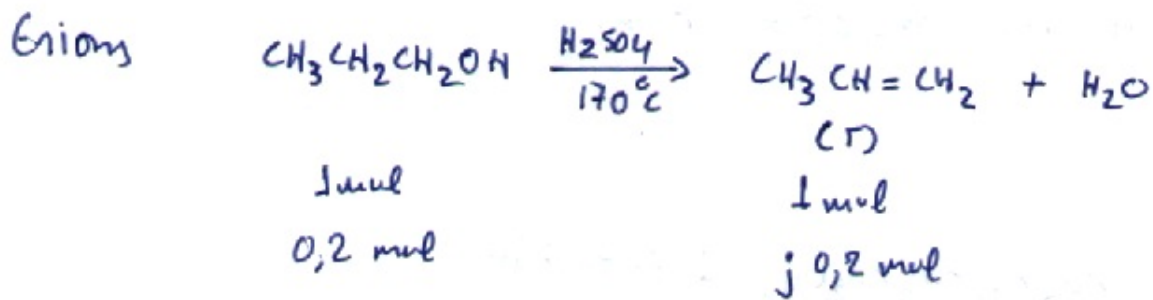 Επίσης CH₃CH₂CH₂OH H₂SO₄ 170°C → CH₃CH=CH₂ + H₂O
(Γ)
1mol 1 mol
0,2 mol ; 0,2 mol